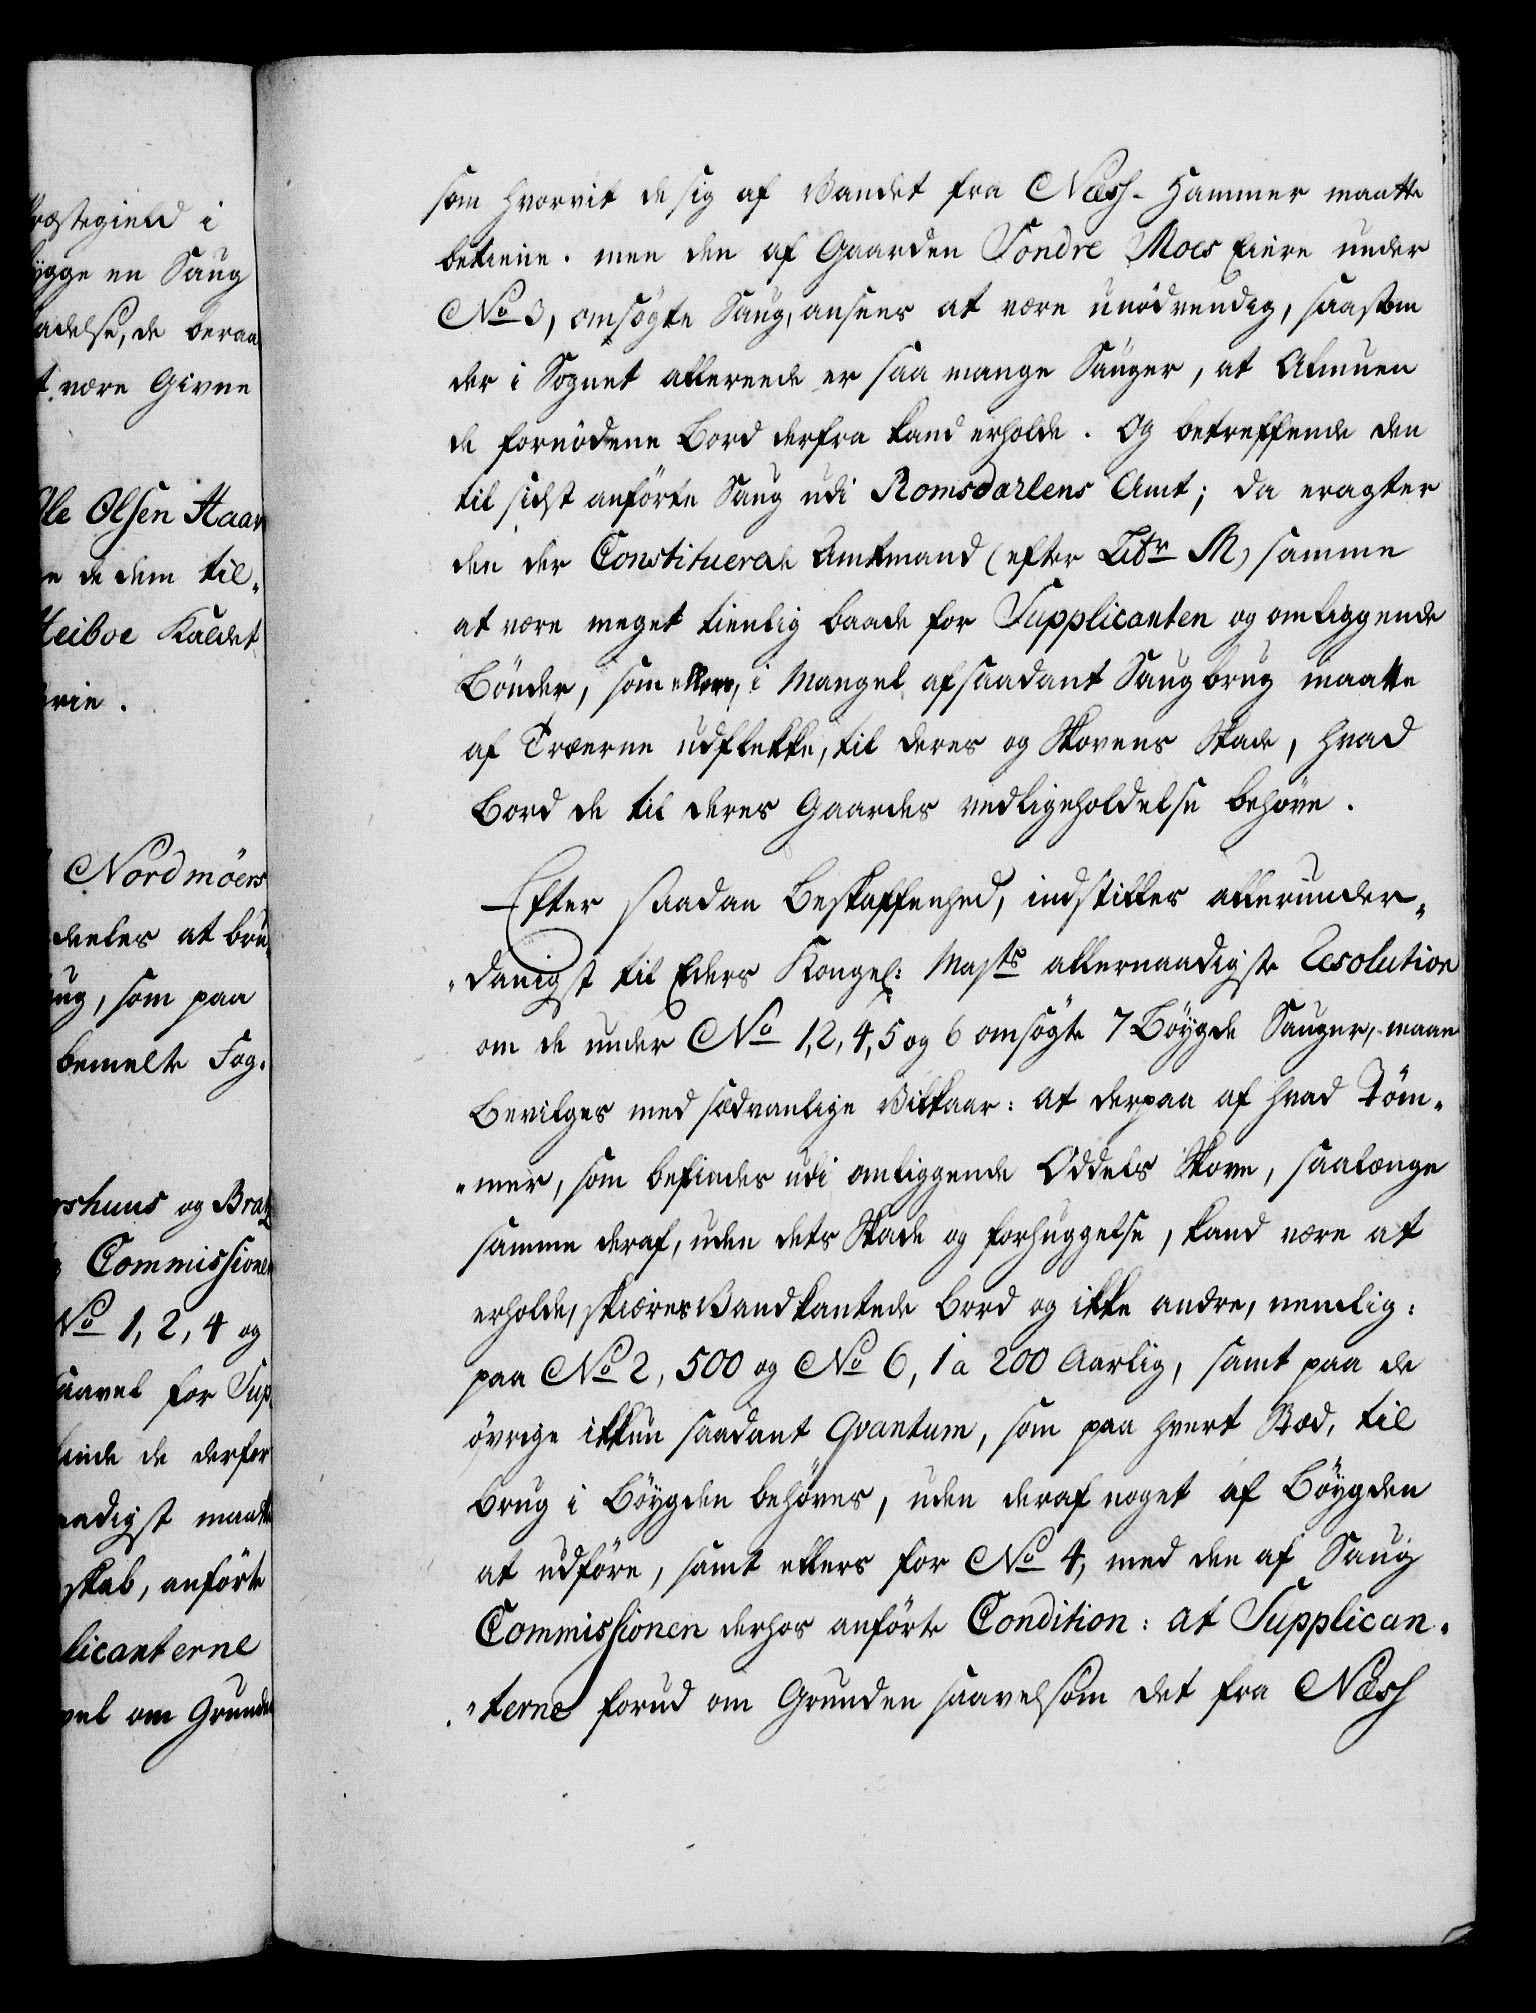 ræstegield i
ygge en Saug
adelse, de beraa
t være Givne
Ole Olsen Haar
e de dem til„
Heiboe Kaldet
rie.
Nordmöers
deeles at bru„
ug, som paa
bemelte Fog„
rshuus og Brat
Commissionen
No 1, 2, 4 og
saavel for Sup„
finde de derfor
aadigst maatte
skab, anförte
licanterne
vel om Grunde
som hvorvit de sig af Vandet fra Næss-Hammer maatte
betiene. men den af Gaarden Søndre Moes Eiere under
No 3, omsögte Saug, ansees at være unödvendig, saasom
der i Sognet allereede er saa mange Sauger, at Almuen
de fornödene Bord derfra kand erholde. Og betreffende den
til sidst anförte Saug udi Romsdarlens Amt; da eragter
den der Constituerede Amtmand (efter Litr M) samme
at være meget tienlig baade for Supplicanten og omliggende
Bönder, som ellers, i Mangel af saadant Saugbrug maatte
af Træerne udflekke, til deres og Skovens Skade, hvad
Bord de til deres Gaardes vedligeholdelse behöve.
Efter saadan Beskaffenhed, indstilles allerunder„
„danigst til Eders Kongel: Majts allernaadigste Resolution
om de under No 1, 2, 4, 5 og 6 omsögte 7 Böygde Sauger, maae
Bevilges med sædvanlige Vilkaar: at derpaa af hvad Töm„
„mer, som befindes udi omliggende Oddels Skove, saalænge
samme deraf, uden dets Skade og forhuggelse, kand være at
erholde, skiæres Vandkantede Bord og ikke andre, nemlig:
paa No 2, 500 og No 6, 1 a 200 Aarlig, samt paa de
övrige ikkun saadant Qvantum, som paa hvert Stæd, til
Brug i Böygden behöves, uden deraf noget af Böygden
at udföre, samt ellers for No 4, med den af Saug
Commissionen derhos anförte Condition: at Supplican„
„terne forud om Grunden saavelsom det fra Næss